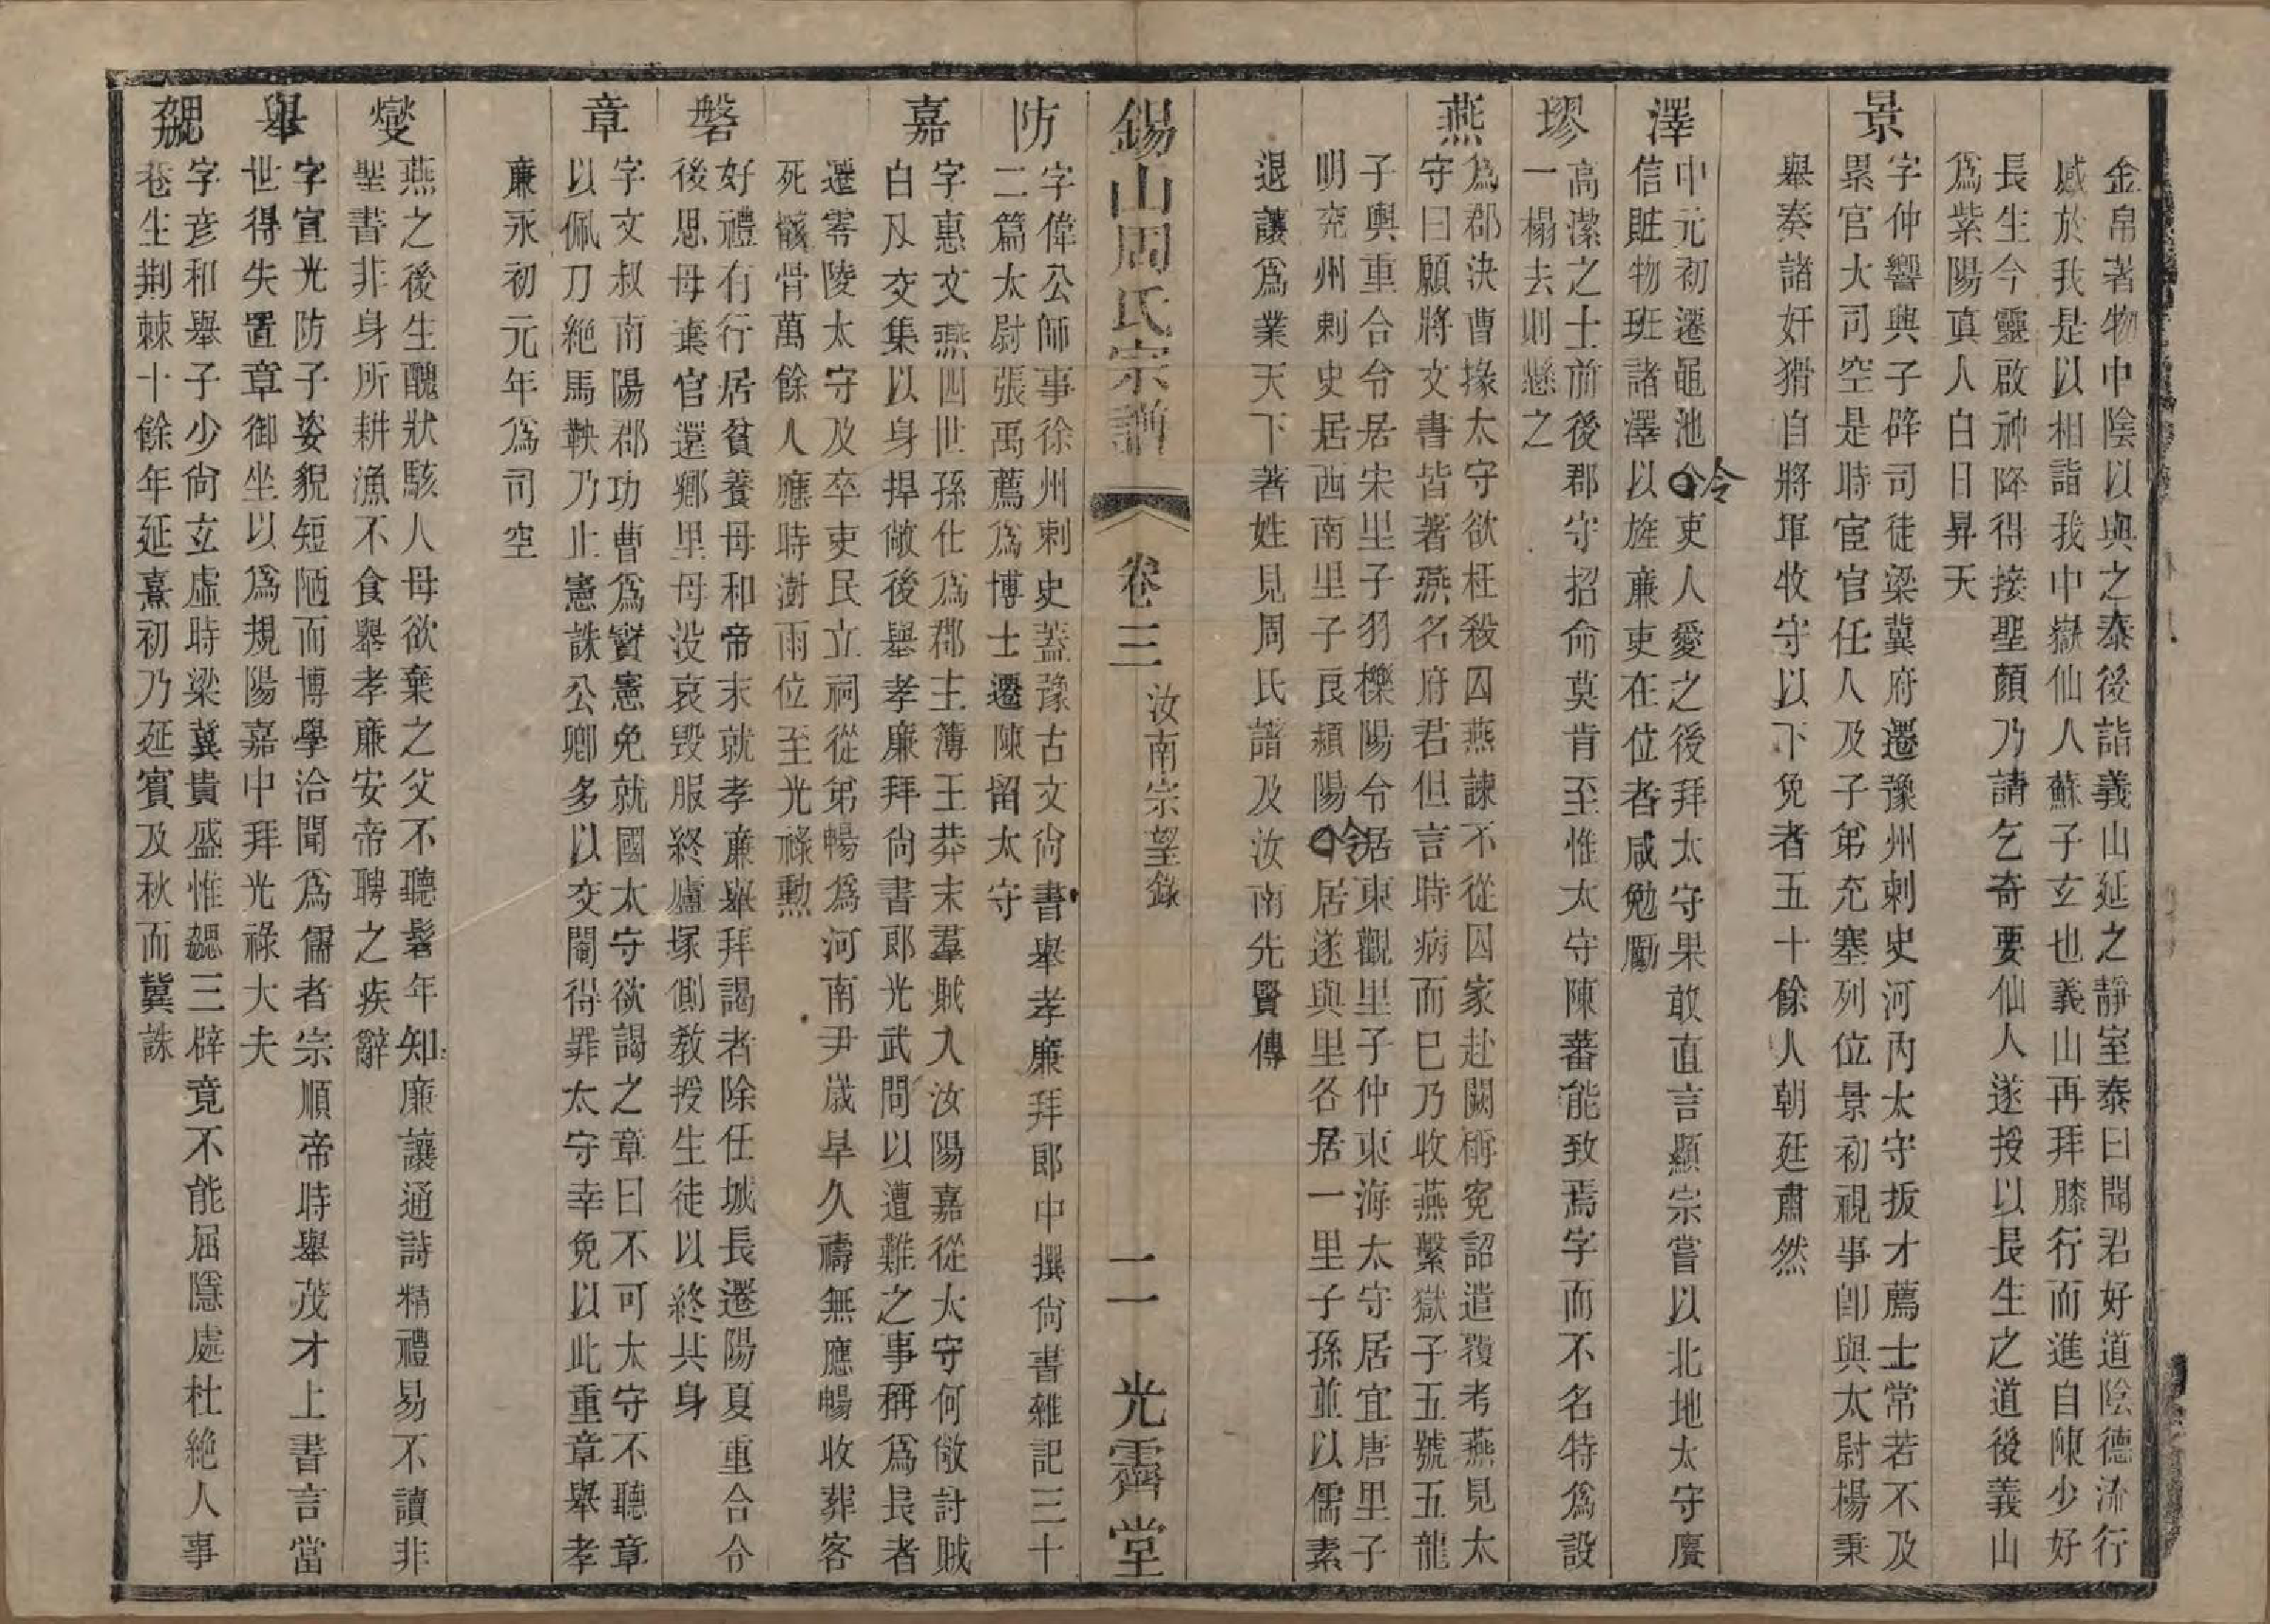 金帛著物中陰以與之泰後詣義山延之靜室泰曰聞君好道陰德流行
感於我是以相詣我中嶽仙人蘇子玄也義山再拜膝行而進自陳少好
長生今靈啟神降得接聖顏乃請乞奇要仙人遂授以長生之道後義山
爲紫陽真人白日昇天
景
字仲響興子辟司徒梁冀府遷豫州刺史河內太守拔才薦士常若不及
累官大司空是時宦官任人及子弟充塞列位景初視事卽與太尉楊秉
舉奏諸奸猾自將軍牧守以下免者五十餘人朝廷肅然
澤
中元初遷黽池令吏人愛之後拜太守果敢直言顯宗嘗以北地太守廖
信贓物班諸澤以旌廉吏在位者咸勉勵
璆
高潔之士前後郡守招命莫肯至惟太守陳蕃能致焉字而不名特爲設
一榻去則懸之
燕
爲郡決曹掾太守欲枉殺囚燕諫不從囚家赴闕稱寃詔遣覆考燕見太
守曰願將文書皆著燕名府君但言時病而已乃收燕繫獄子五號五龍
子輿重合令居宋里子羽櫟陽令居東觀里子仲東海太守居宜唐里子
明兗州刺史居西南里子良頴陽令居遂與里各居一里子孫並以儒素
退讓爲業天下著姓見周氏譜及汝南先賢傳
錫山周氏宗譜 卷三 汝南宗望錄 二 光霽堂
防
字偉公師事徐州刺史蓋豫古文尙書舉孝廉拜郎中撰尙書雜記三十
二篇太尉張禹薦爲博士遷陳留太守
嘉
字惠文燕四世孫仕爲郡主簿王莽末羣賊入汝陽嘉從太守何敞討賊
白刃交集以身捍敞後舉孝廉拜尙書郎光武問以遭難之事稱爲長者
遷零陵太守及卒吏民立祠從弟暢爲河南尹歲旱久禱無應暢收葬客
死骸骨萬餘人應時澍雨位至光祿勲
磐
好禮有行居貧養母和帝末就孝廉舉拜謁者除任城長遷陽夏重合令
後思母棄官還鄉里母沒哀毀服終廬塚側敎授生徒以終其身
章
字文叔南陽郡功曹爲竇憲免就國太守欲謁之章曰不可太守不聽章
以佩刀絶馬鞅乃止憲誅公卿多以交閹得罪太守幸免以此重章舉孝
廉永初元年爲司空
燮
燕之後生醜狀駭人母欲棄之父不聽髫年知廉讓通詩精禮易不讀非
聖書非身所耕漁不食舉孝廉安帝聘之疾辭
舉
字宣光防子姿貌短陋而博學洽聞爲儒者宗順帝時舉茂才上書言當
世得失置章御坐以爲規陽嘉中拜光祿大夫
勰
字彥和舉子少尙立虛時梁冀貴盛惟勰三辟竟不能屈隱處杜絶人事
巷生荆棘十餘年延熹初乃延賓及秋而冀誅